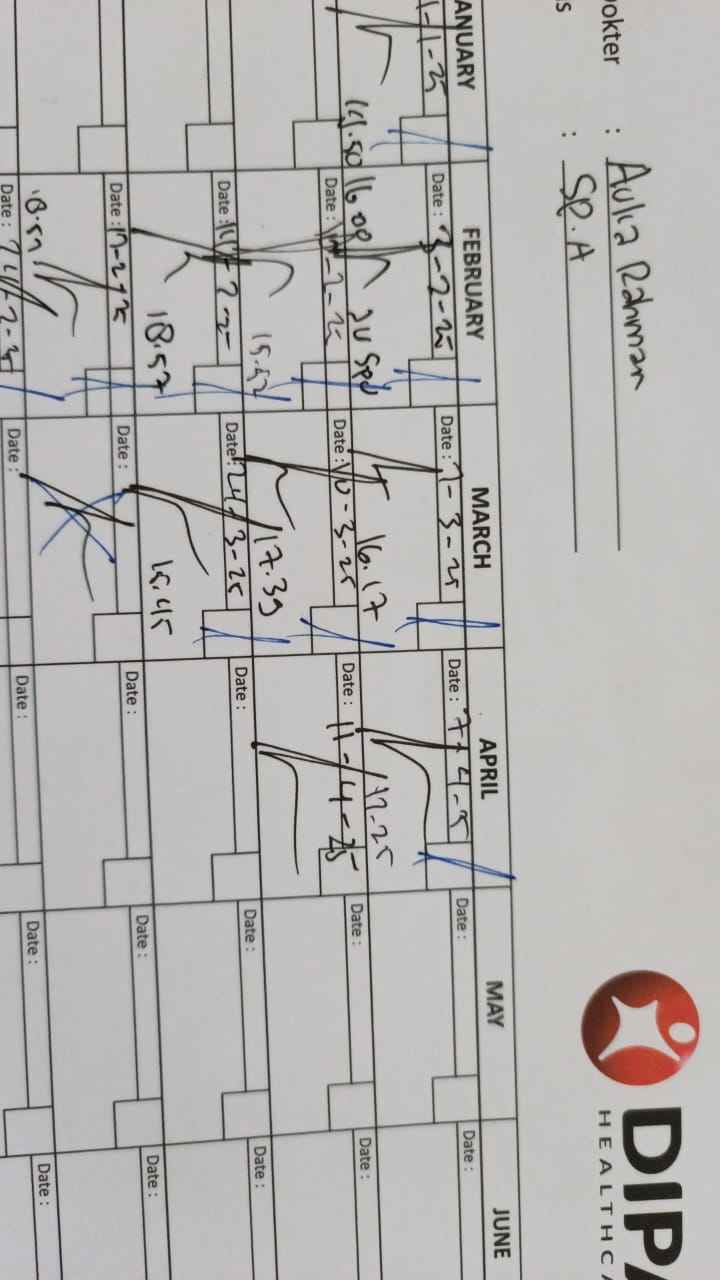 okter : Aulia Rahman
s : SP.A
DIPA
HEALTHCA
ANUARY FEBRUARY MARCH APRIL MAY JUNE
Date : 3-2-25 Date : 7-3-25 Date : 7-4-5 Date : Date :
19.50 16.00 16.17 17.25
Date : Date : 10-3-25 Date : 11-4-25 Date : Date :
15.52 17.39
Date : Date : 24-3-25 Date : Date : Date :
18.57 15.45
Date : 17-2-25 Date : Date : Date : Date :
18.57
Date : 24-2-25 Date : Date : Date : Date :